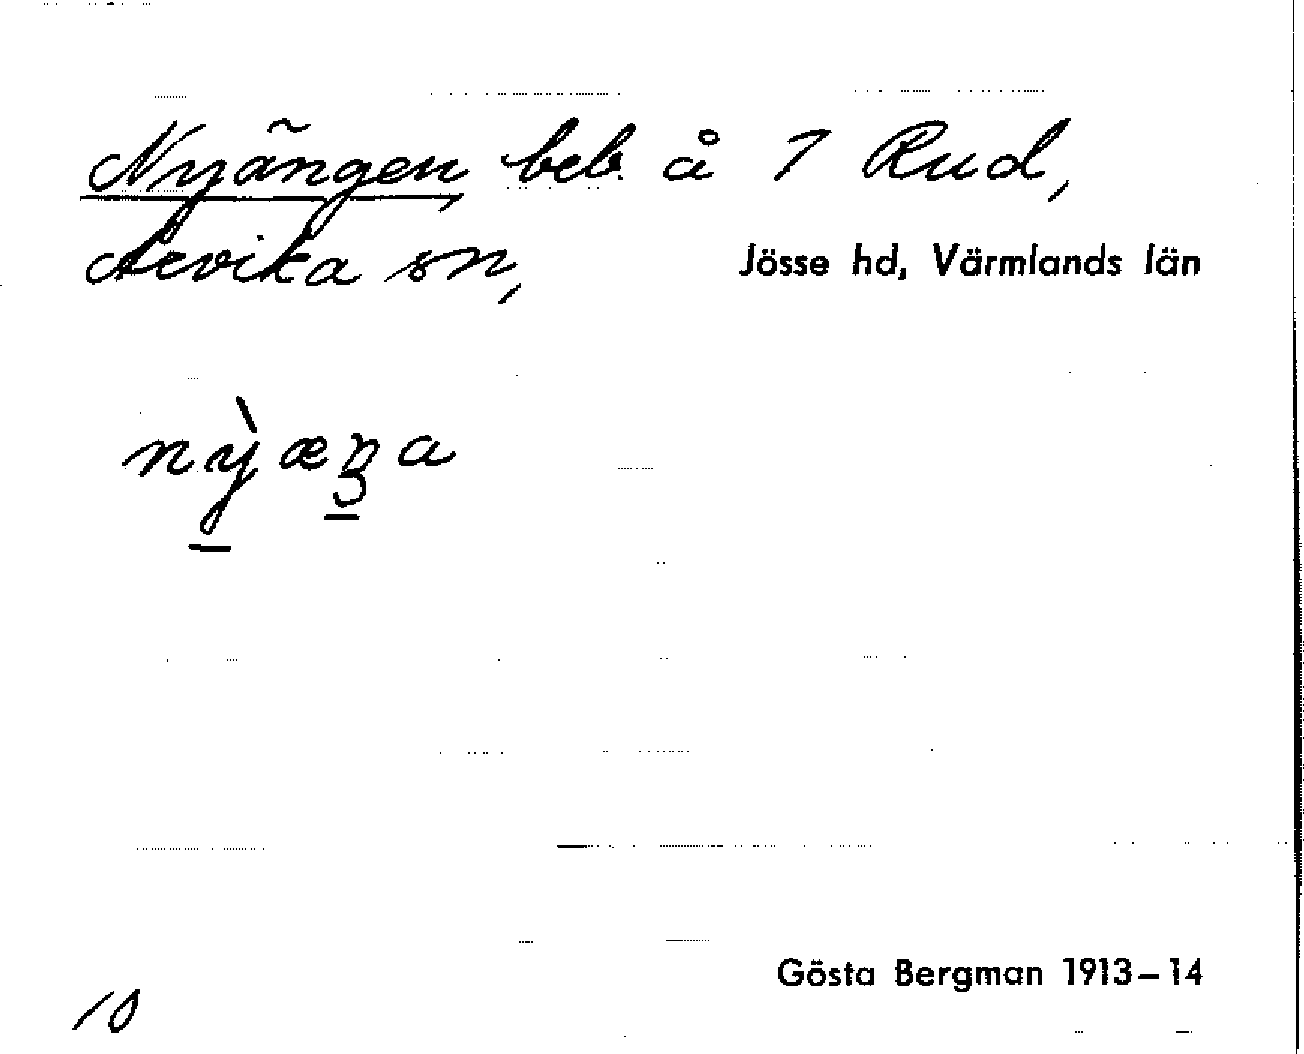 Nyängen, beb. å 7 Rud,
Arvika sn, Jösse hd, Värmlands län
nỳ̠æŋ̠a
Gösta Bergman 1913–14
10